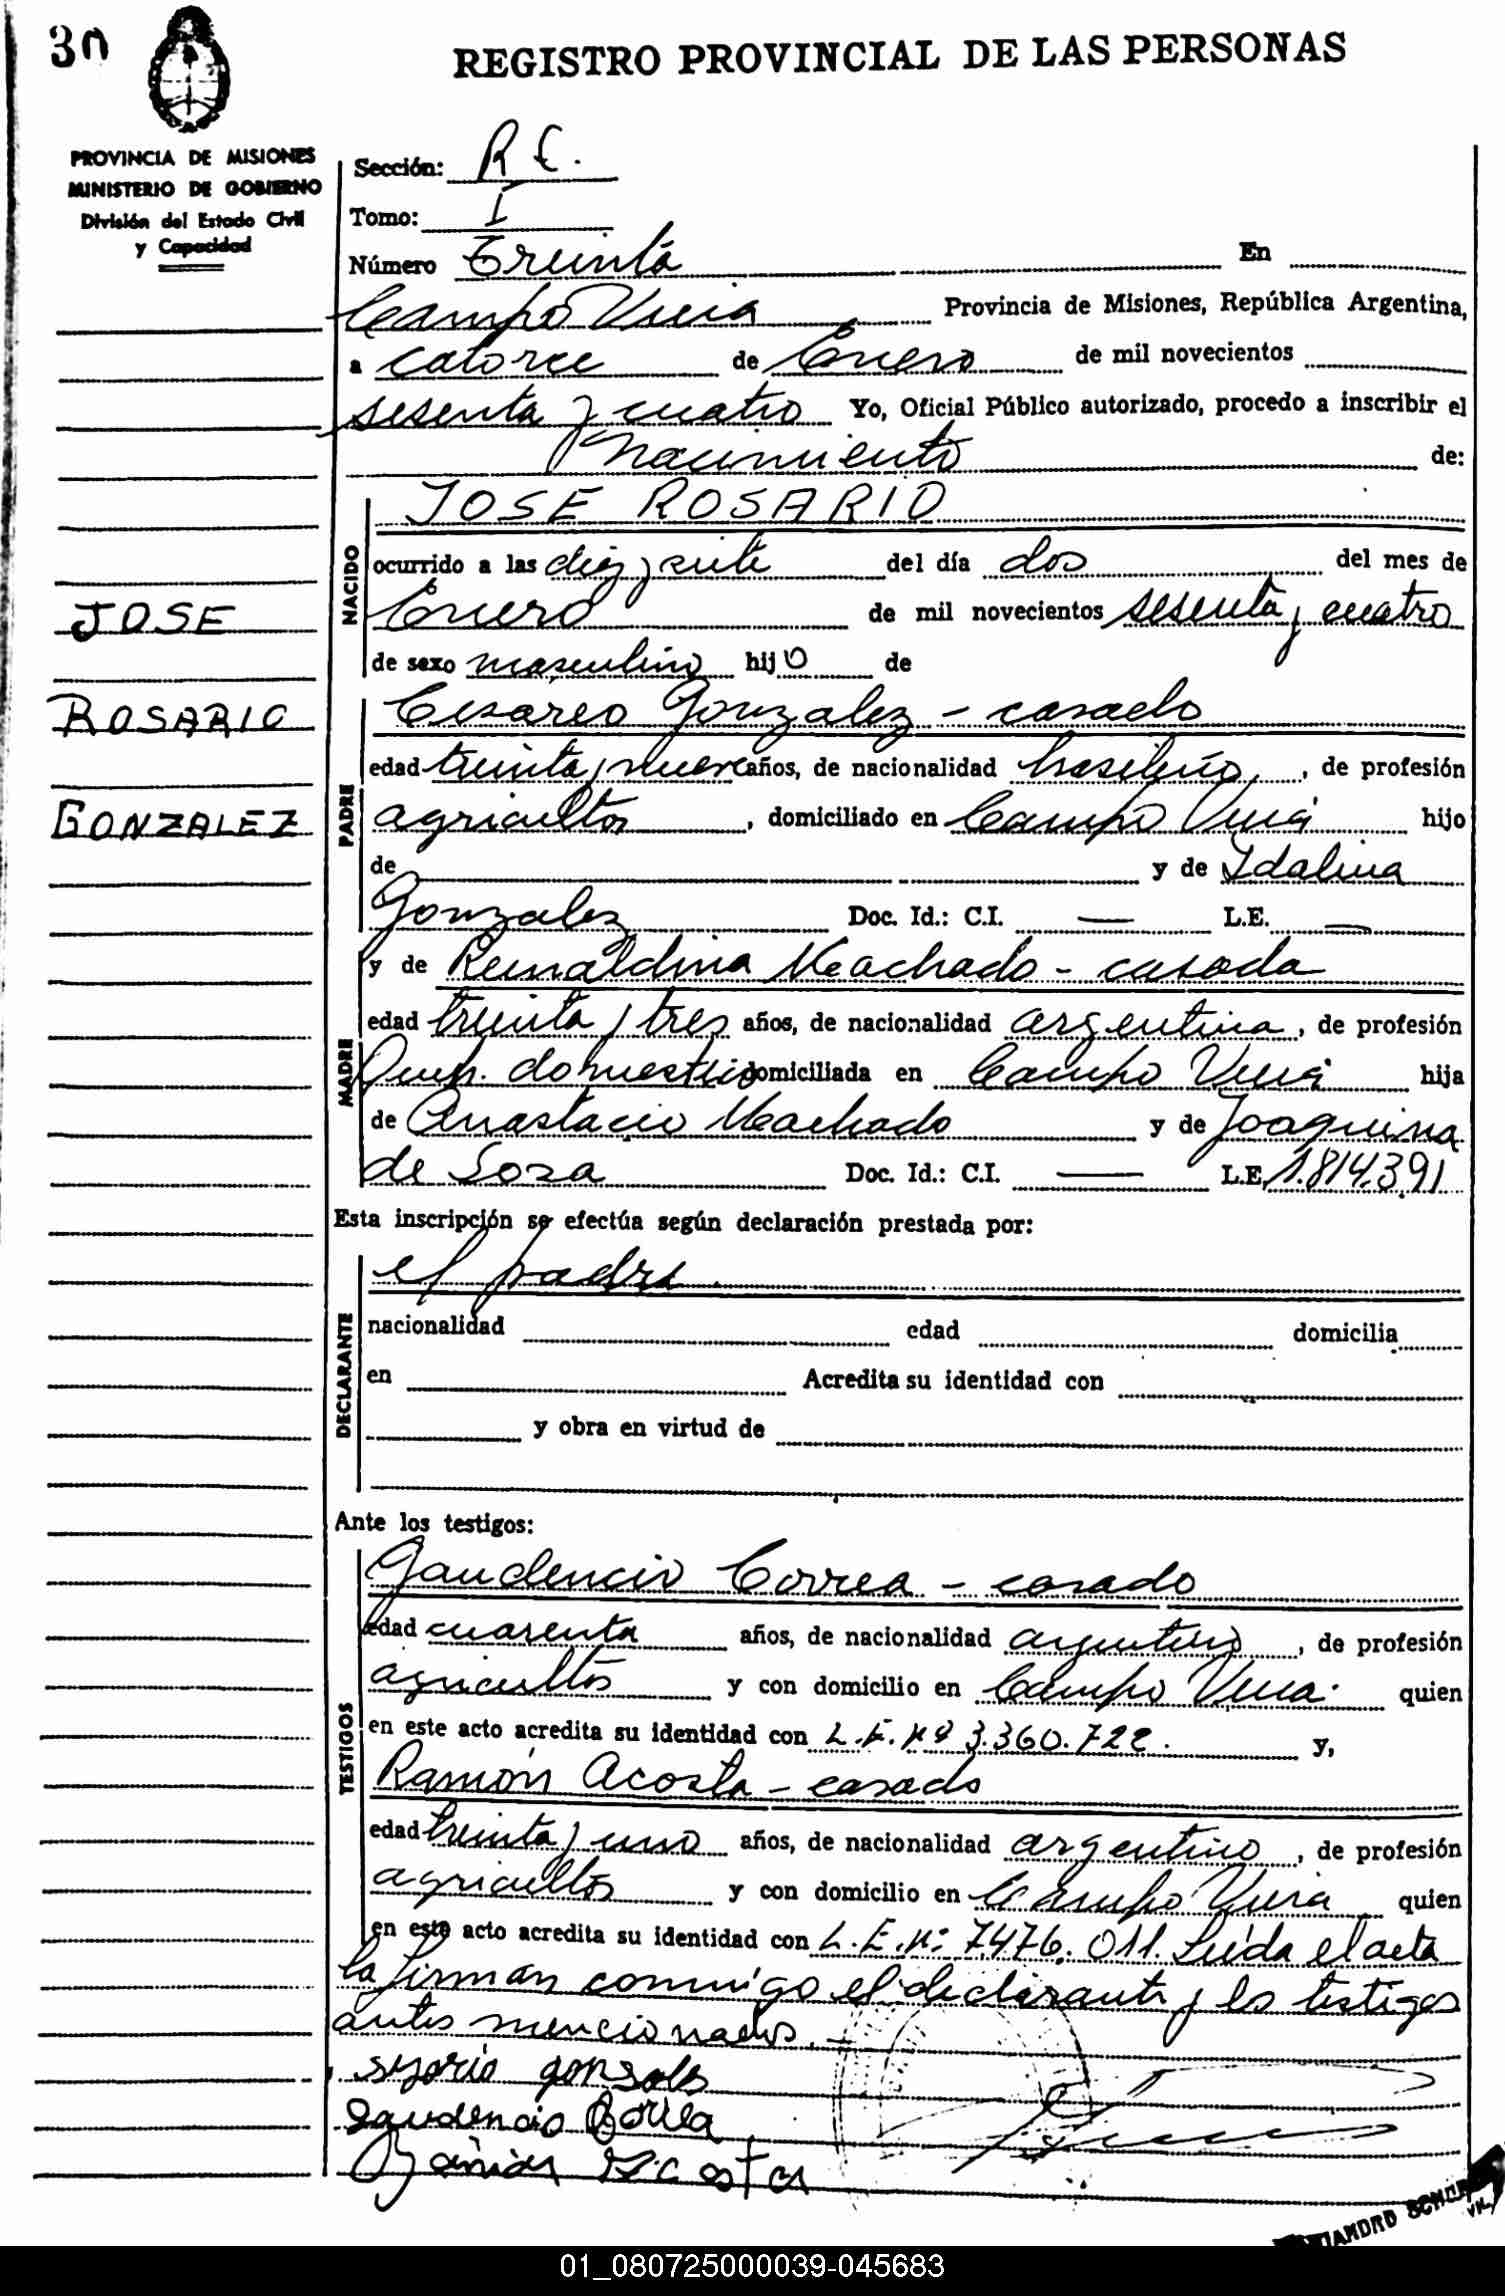 30
REGISTRO PROVINCIAL DE LAS PERSONAS
PROVINCIA DE MISIONES
MINISTERIO DE GOBIERNO
División del Estado Civil
y Capacidad
Sección: R C.
Tomo: I
Número Treinta En
Campo Viera Provincia de Misiones, República Argentina,
a catorce de Enero de mil novecientos
sesenta y cuatro Yo, Oficial Público autorizado, procedo a inscribir el
Nacimiento de:
JOSE ROSARIO
NACIDO
ocurrido a las diez y siete del día dos del mes de
Enero de mil novecientos sesenta y cuatro
de sexo masculino hijo de
JOSE
ROSARIO
GONZALEZ
Cesáreo Gonzalez - casado
PADRE
edad treinta y nueve años, de nacionalidad brasileño, de profesión
agricultor, domiciliado en Campo Viera hijo
de y de Idalina
Gonzalez Doc. Id.: C.I. — L.E. —
y de Reinaldina Machado - casada
MADRE
edad treinta y tres años, de nacionalidad argentina, de profesión
Queh. domestico domiciliada en Campo Viera hija
de Anastacio Machado y de Joaquina
de Soza Doc. Id.: C.I. — L.E. 1.814.391
Esta inscripción se efectúa según declaración prestada por:
el padre.
DECLARANTE
nacionalidad edad domicilia
en Acredita su identidad con
y obra en virtud de
Ante los testigos:
Gaudencio Correa - casado
TESTIGOS
edad cuarenta años, de nacionalidad argentino, de profesión
agricultor y con domicilio en Campo Viera quien
en este acto acredita su identidad con L.E. Nº 3.360.722. y,
Ramón Acosta - casado
edad treinta y uno años, de nacionalidad argentino, de profesión
agricultor y con domicilio en Campo Viera quien
en este acto acredita su identidad con L.E.N: 7.476.011. Leída el acta
la firman conmigo el declarante y los testigos
antes mencionados. -
gonsales
gaudencio Correa
Acosta
01_080725000039-045683